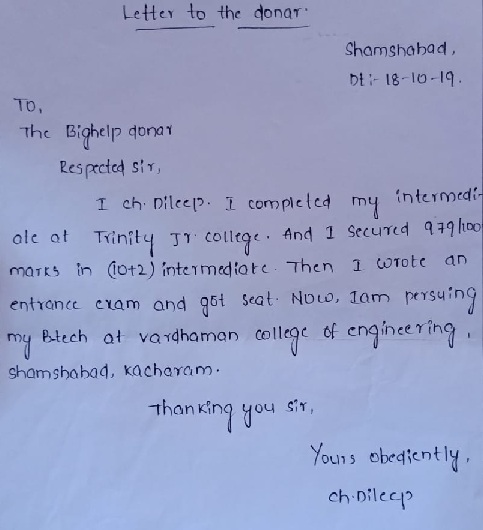 Letter to the donar.
Shamshabad,
Dt:- 18-10-19.
To,
The Bighelp donar
Respected sir,
I ch. Dileep. I completed my intermedi-
ate at Trinity Jr. college. And I secured 979/100
marks in (10+2) intermediate. Then I wrote an
entrance exam and got seat. Now, Iam persuing
my B.tech at vardhaman college of engineering,
shamshabad, kacharam.
Thanking you sir,
Yours obediently,
ch.Dileep